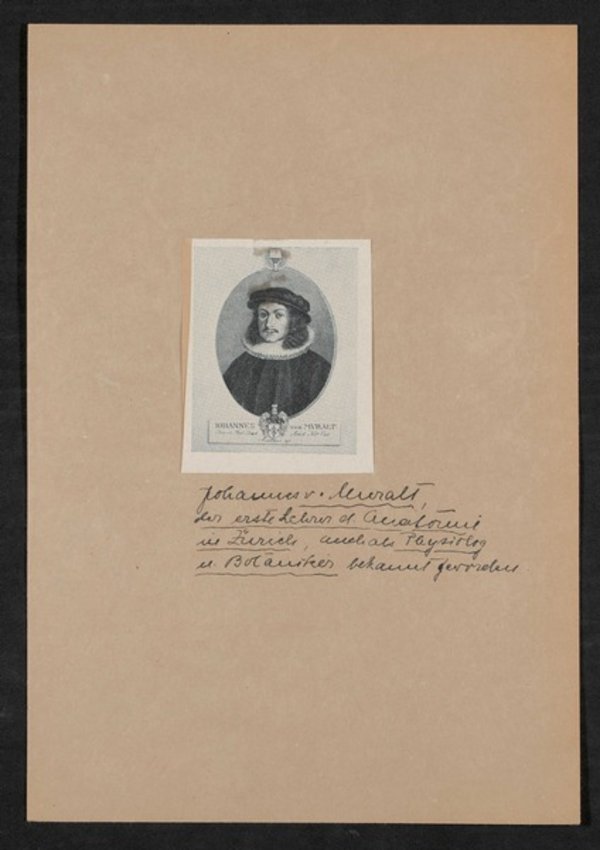 IOHANNES von MVRALT.
Johannes v. Muralt,
der erste Lehrer d. Anatomie
in Zürich, auch als Physiolog
u. Botaniker bekannt geworden.